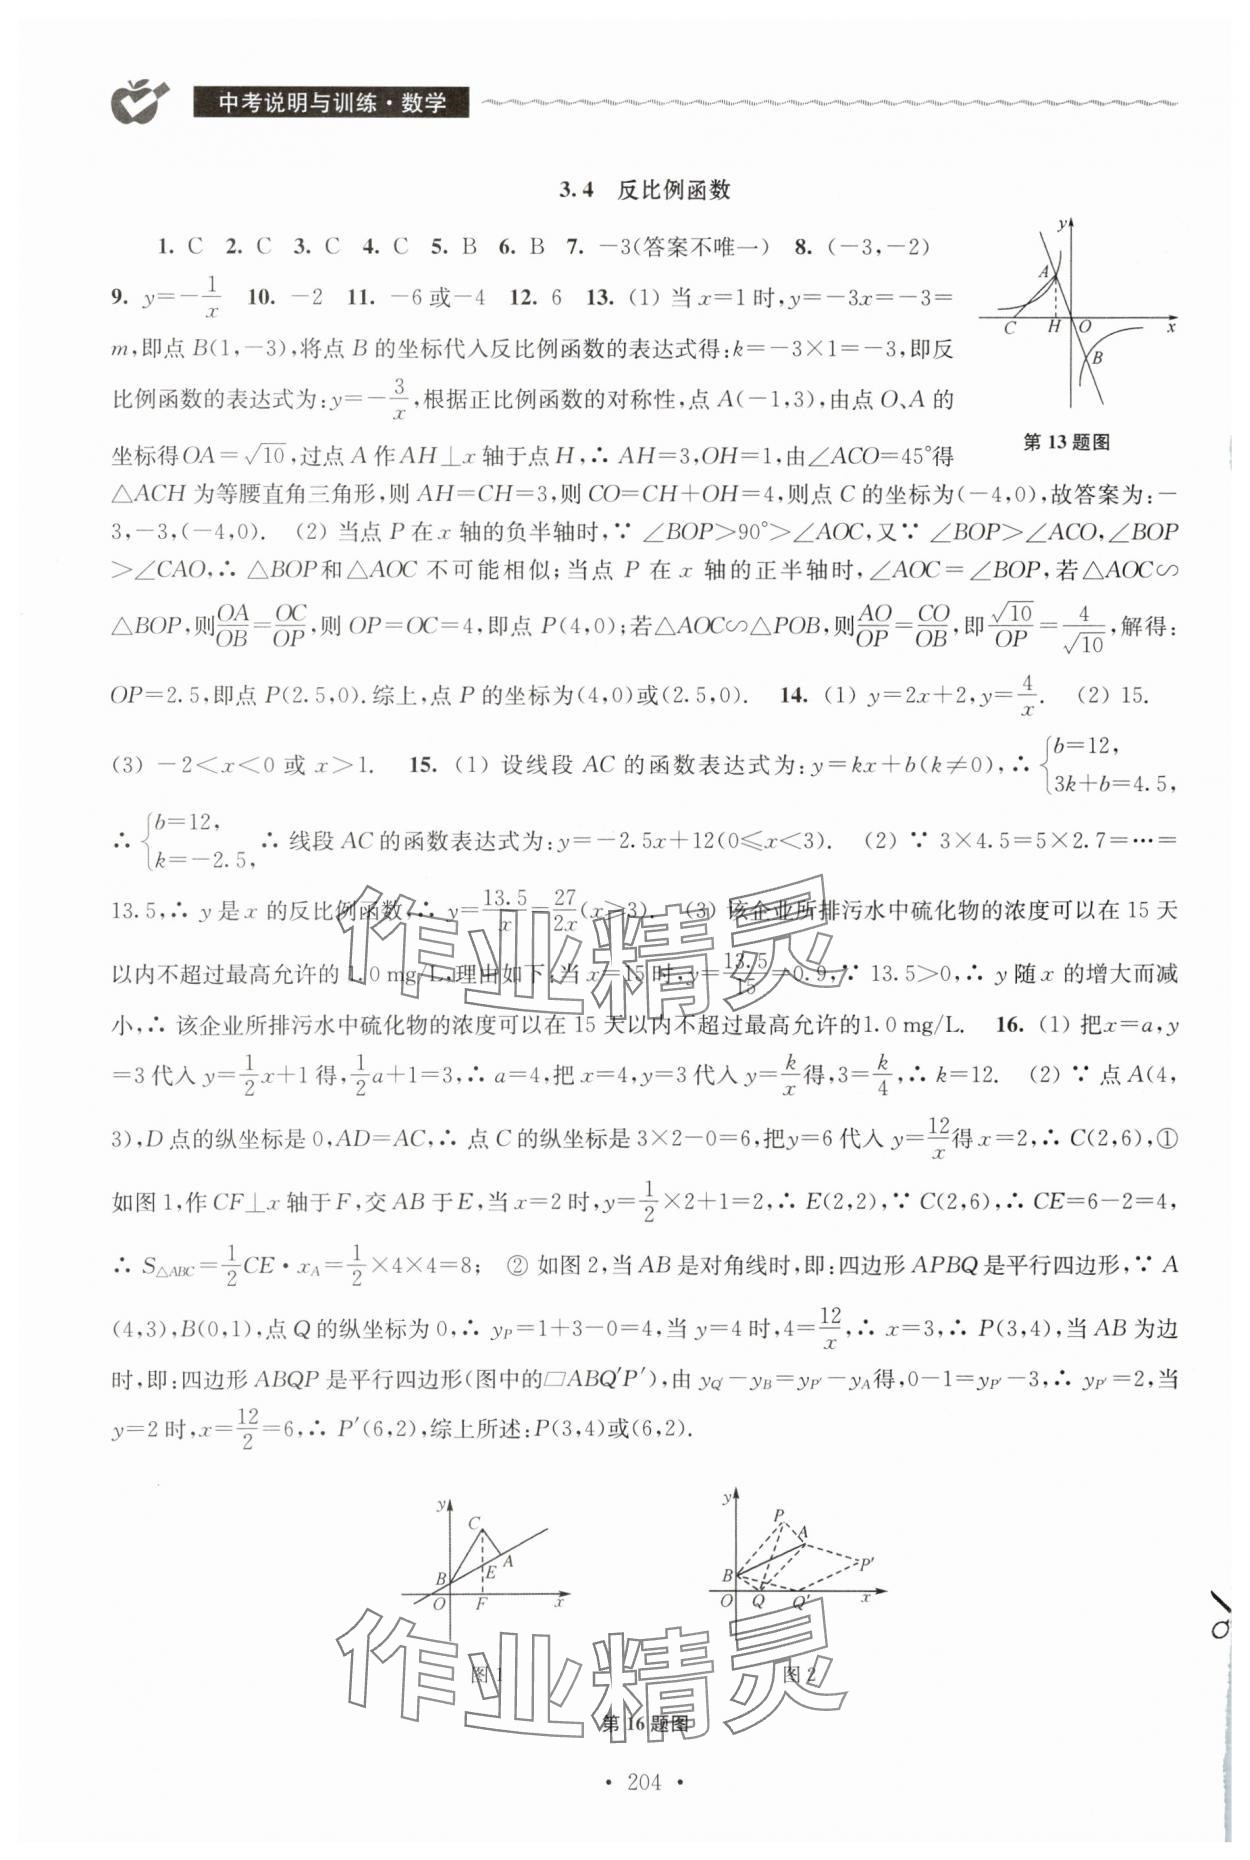 中考说明与训练·数学
3.4 反比例函数
1. C 2. C 3. C 4. C 5. B 6. B 7. －3(答案不唯一) 8. (－3,－2)
9. y=－1/x 10. －2 11. －6或－4 12. 6 13. (1) 当x=1时,y=－3x=－3=
m,即点B(1,－3),将点B的坐标代入反比例函数的表达式得:k=－3×1=－3,即反
比例函数的表达式为:y=－3/x,根据正比例函数的对称性,点A(－1,3),由点O、A的
坐标得OA=√10,过点A作AH⊥x轴于点H,∴ AH=3,OH=1,由∠ACO=45°得
△ACH为等腰直角三角形,则AH=CH=3,则CO=CH+OH=4,则点C的坐标为(－4,0),故答案为:－
3,－3,(－4,0). (2) 当点P在x轴的负半轴时,∵ ∠BOP>90°>∠AOC,又∵ ∠BOP>∠ACO,∠BOP
>∠CAO,∴ △BOP和△AOC不可能相似;当点P在x轴的正半轴时,∠AOC=∠BOP,若△AOC∽
△BOP,则OA/OB=OC/OP,则OP=OC=4,即点P(4,0);若△AOC∽△POB,则AO/OP=CO/OB,即√10/OP=4/√10,解得:
OP=2.5,即点P(2.5,0).综上,点P的坐标为(4,0)或(2.5,0). 14. (1) y=2x+2,y=4/x. (2) 15.
(3) －2<x<0或x>1. 15. (1) 设线段AC的函数表达式为:y=kx+b(k≠0),∴ {b=12, 3k+b=4.5,
∴ {b=12, k=－2.5, ∴ 线段AC的函数表达式为:y=－2.5x+12(0≤x<3). (2) ∵ 3×4.5=5×2.7=…=
13.5,∴ y是x的反比例函数,∴ y=13.5/x=27/2x(x≥3). (3) 该企业所排污水中硫化物的浓度可以在15天
以内不超过最高允许的1.0 mg/L,理由如下:当x=15时,y=13.5/15=0.9,∵ 13.5>0,∴ y随x的增大而减
小,∴ 该企业所排污水中硫化物的浓度可以在15天以内不超过最高允许的1.0 mg/L. 16. (1) 把x=a,y
=3代入y=1/2x+1得,1/2a+1=3,∴ a=4,把x=4,y=3代入y=k/x得,3=k/4,∴ k=12. (2) ∵ 点A(4,
3),D点的纵坐标是0,AD=AC,∴ 点C的纵坐标是3×2－0=6,把y=6代入y=12/x得x=2,∴ C(2,6),①
如图1,作CF⊥x轴于F,交AB于E,当x=2时,y=1/2×2+1=2,∴ E(2,2),∵ C(2,6),∴ CE=6－2=4,
∴ S△ABC=1/2CE·xA=1/2×4×4=8; ② 如图2,当AB是对角线时,即:四边形APBQ是平行四边形,∵ A
(4,3),B(0,1),点Q的纵坐标为0,∴ yP=1+3－0=4,当y=4时,4=12/x,∴ x=3,∴ P(3,4),当AB为边
时,即:四边形ABQP是平行四边形(图中的▱ABQ′P′),由yQ′－yB=yP′－yA得,0－1=yP′－3,∴ yP′=2,当
y=2时,x=12/2=6,∴ P′(6,2),综上所述:P(3,4)或(6,2).
y
A
C H O x
B
第13题图
y
C
A
E
B
O F x
图1
y
P
A
P′
B
O Q Q′ x
图2
第16题图
作业精灵
作业精灵
· 204 ·